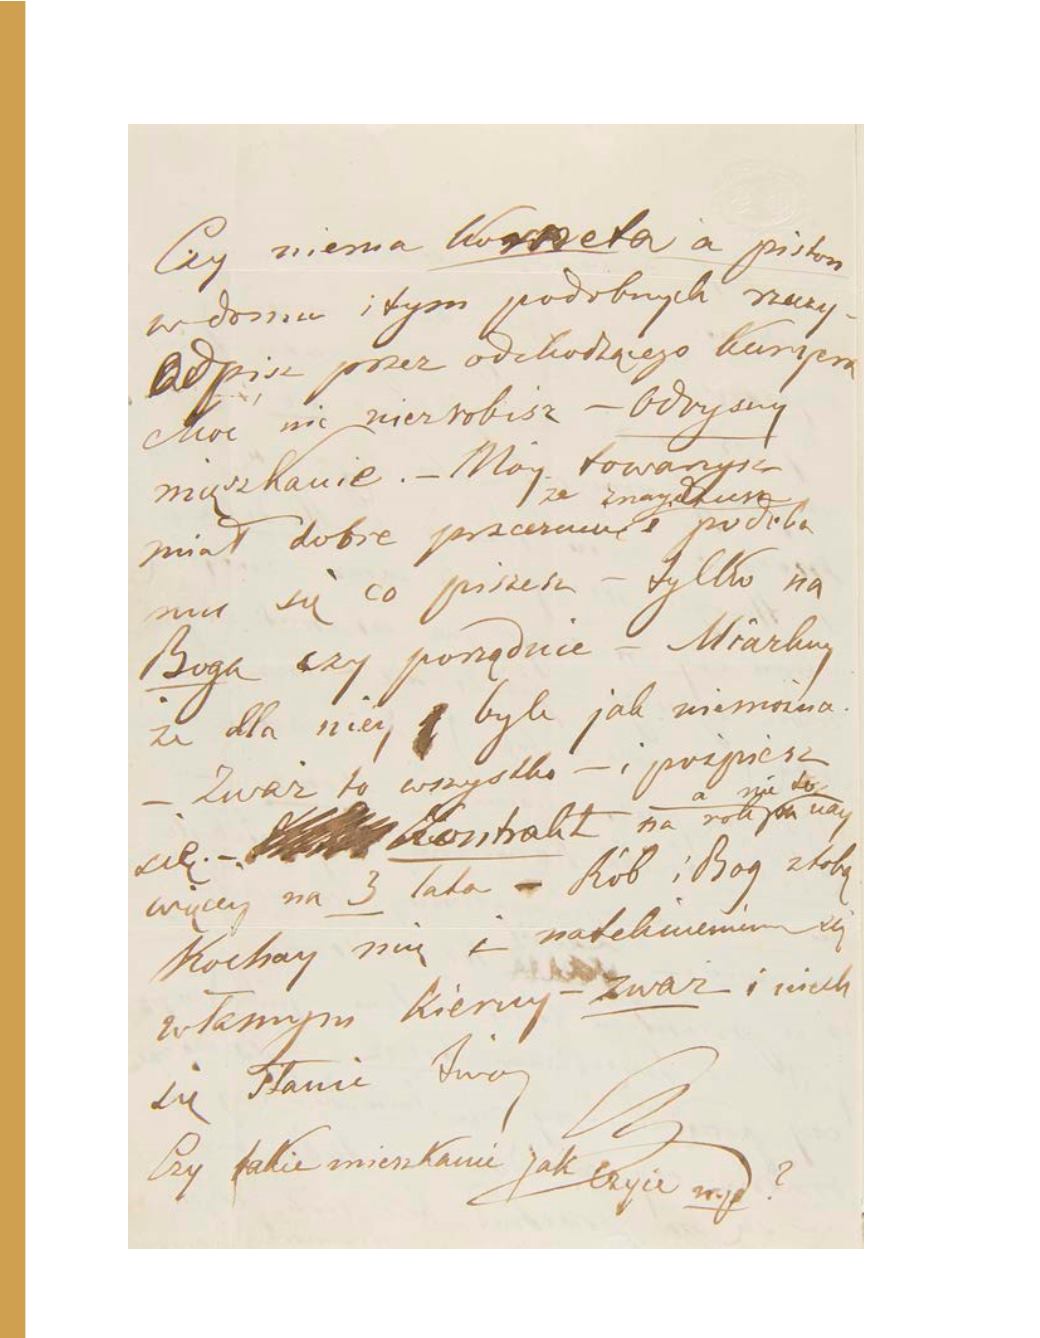 Czy niema Korneta à piston
w domu i tym podobnych rzeczy –
Odpisz przez odchodzącego kuryera
choć nic niezrobisz – Odrysuy
mięszkanie. – Móy towarzysz
ze znaydziesz
miał dobre przeczucie i podoba
mu się co piszesz – tylko na
Boga czy porządnie – Miarkuy
że dla niey byle jak niemożna.
– Zważ to wszystko – i pośpiesz
a nie to
się. – Kontrakt na rok nay
więcey na 3 lata – Rób i Bog z tobą
Kochay mię i natchnieniem się
własnym kieruy – zważ i niech
się stanie Twoy
Czy takie mieszkanie jak czyie